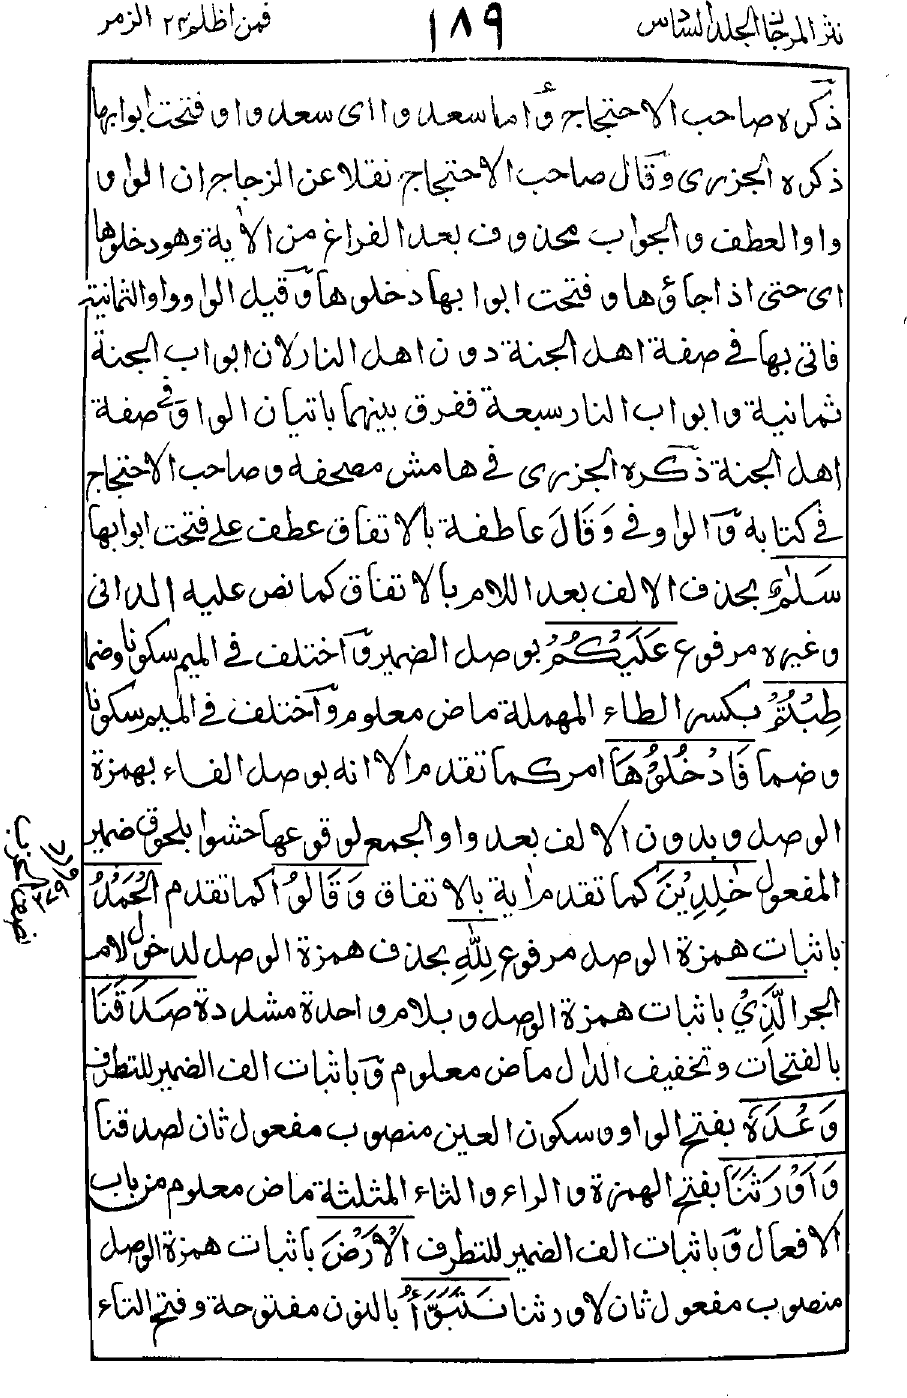 نثر المرجان الجلد السادس ١٨٩ فمن اظلم ٢٤ الزمر
ذكره صاحب الاحتجاج و اما سعد و ا اى سعد و ا و فتحت ابوابها
ذكره الجزرى و قال صاحب الاحتجاج نقلا عن الزجاج ان الواو
واو العطف و الجواب محذوف بعد الفراغ من الآية وهو دخلوها
اى حتى اذا جاؤها و فتحت ابوابها دخلوها و قيل الواو واو الثمانية
فاتى بها فى صفة اهل الجنة دون اهل النار لان ابواب الجنة
ثمانية و ابواب النار سبعة ففرق بينهما باتيان الواو فى صفة
اهل الجنة ذكره الجزرى فى هامش مصحفه و صاحب الاحتجاج
فى كتابه و الواو فى وَقَالَ عاطفة بالاتفاق عطف على فتحت ابوابها
سَلٰمٌ بحذف الالف بعد اللام بالاتفاق كما نص عليه الدانى
و غيره مرفوع عَلَيْكُمْ بوصل الضمير و اختلف فى الميم سكونا وضما
طِبْتُمْ بكسر الطاء المهملة ماض معلوم و اختلف فى الميم سكونا
و ضما فَادْخُلُوْهَا امر كما تقدم الا انه بوصل الفاء بهمزة
الوصل و بدون الالف بعد واو الجمع لوقوعها حشوا بلحوق ضمير
المفعول خٰلِدِيْنَ كما تقدم اٰية بالاتفاق وَقَالُوا كما تقدم الْحَمْدُ
باثبات همزة الوصل مرفوع لِلّٰهِ بحذف همزة الوصل لدخول لام
الجر الَّذِيْ باثبات همزة الوصل و بلام واحدة مشددة صَدَقَنَا
بالفتحات و تخفيف الدال ماض معلوم و باثبات الف الضمير للتطرف
وَعْدَهٗ بفتح الواو و سكون العين منصوب مفعول ثان لصدقنا
وَاَوْرَثَنَا بفتح الهمزة و الراء و الثاء المثلثة ماض معلوم من باب
الافعال و باثبات الف الضمير للتطرف الْاَرْضَ باثبات همزة الوصل
منصوب مفعول ثان لاورثنا نَتَبَوَّأُ بالنون مفتوحة و فتح التاء
نصف الحزب